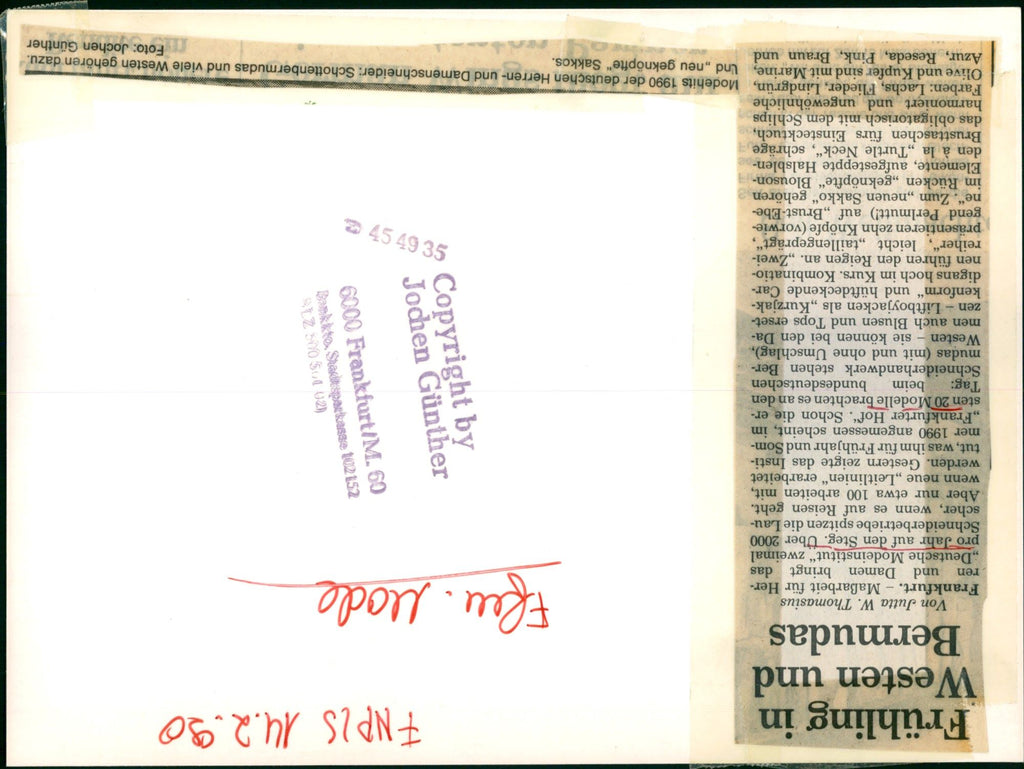 Frühling in
Westen und
Bermudas
Von Jutta W. Thomasius
Frankfurt. – Maßarbeit für Her-
ren und Damen bringt das
„Deutsche Modeinstitut“ zweimal
pro Jahr auf den Steg. Über 2000
Schneiderbetriebe spitzen die Lau-
scher, wenn es auf Reisen geht.
Aber nur etwa 100 arbeiten mit,
wenn neue „Leitlinien“ erarbeitet
werden. Gestern zeigte das Insti-
tut, was ihm für Frühjahr und Som-
mer 1990 angemessen scheint, im
„Frankfurter Hof“. Schon die er-
sten 20 Modelle brachten es an den
Tag: beim bundesdeutschen
Schneiderhandwerk stehen Ber-
mudas (mit und ohne Umschlag),
Westen – sie können bei den Da-
men auch Blusen und Tops erset-
zen – Liftboyjacken als „Kurzjak-
kenform“ und hüftdeckende Car-
digans hoch im Kurs. Kombinatio-
nen führen den Reigen an. „Zwei-
reiher“, leicht „taillengeprägt“,
präsentieren zehn Knöpfe (vorwie-
gend Perlmutt!) auf „Brust-Ebe-
ne“. Zum „neuen Sakko“ gehören
im Rücken „geknöpfte“ Blouson-
Elemente, aufgesteppte Halbblen-
den à la „Turtle Neck“, schräge
Brusttaschen fürs Einstecktuch,
das obligatorisch mit dem Schlips
harmoniert und ungewöhnliche
Farben: Lachs, Flieder, Lindgrün,
Olive und Kupfer sind mit Marine,
Azur, Reseda, Pink, Braun und
Modehits 1990 der deutschen Herren- und Damenschneider: Schottenbermudas und viele Westen gehören dazu.
Und „neu geknöpfte“ Sakkos.
Foto: Jochen Günther
FNP LS 14.2.90
Ffm. Mode
454935
Copyright by
Jochen Günther
6000 Frankfurt/M. 60
Bankkto. Stadtsparkasse 102152